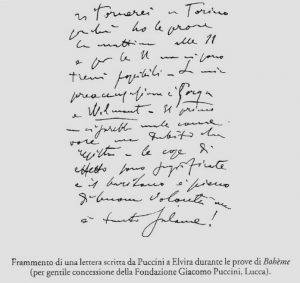 Tornerei a Torino
perché ho le prove
la mattina alle 11
e per le 11 non ci sono
treni possibili - Le mie
preoccupazioni è Gorga
e Wilmant - Il primo
male come
voce ma dubito che
le cose di
effetto sono
e il baritono è pieno
di buona volontà ma
è tanto salame!
Frammento di una lettera scritta da Puccini a Elvira durante le prove di Bohème
(per gentile concessione della Fondazione Giacomo Puccini, Lucca).